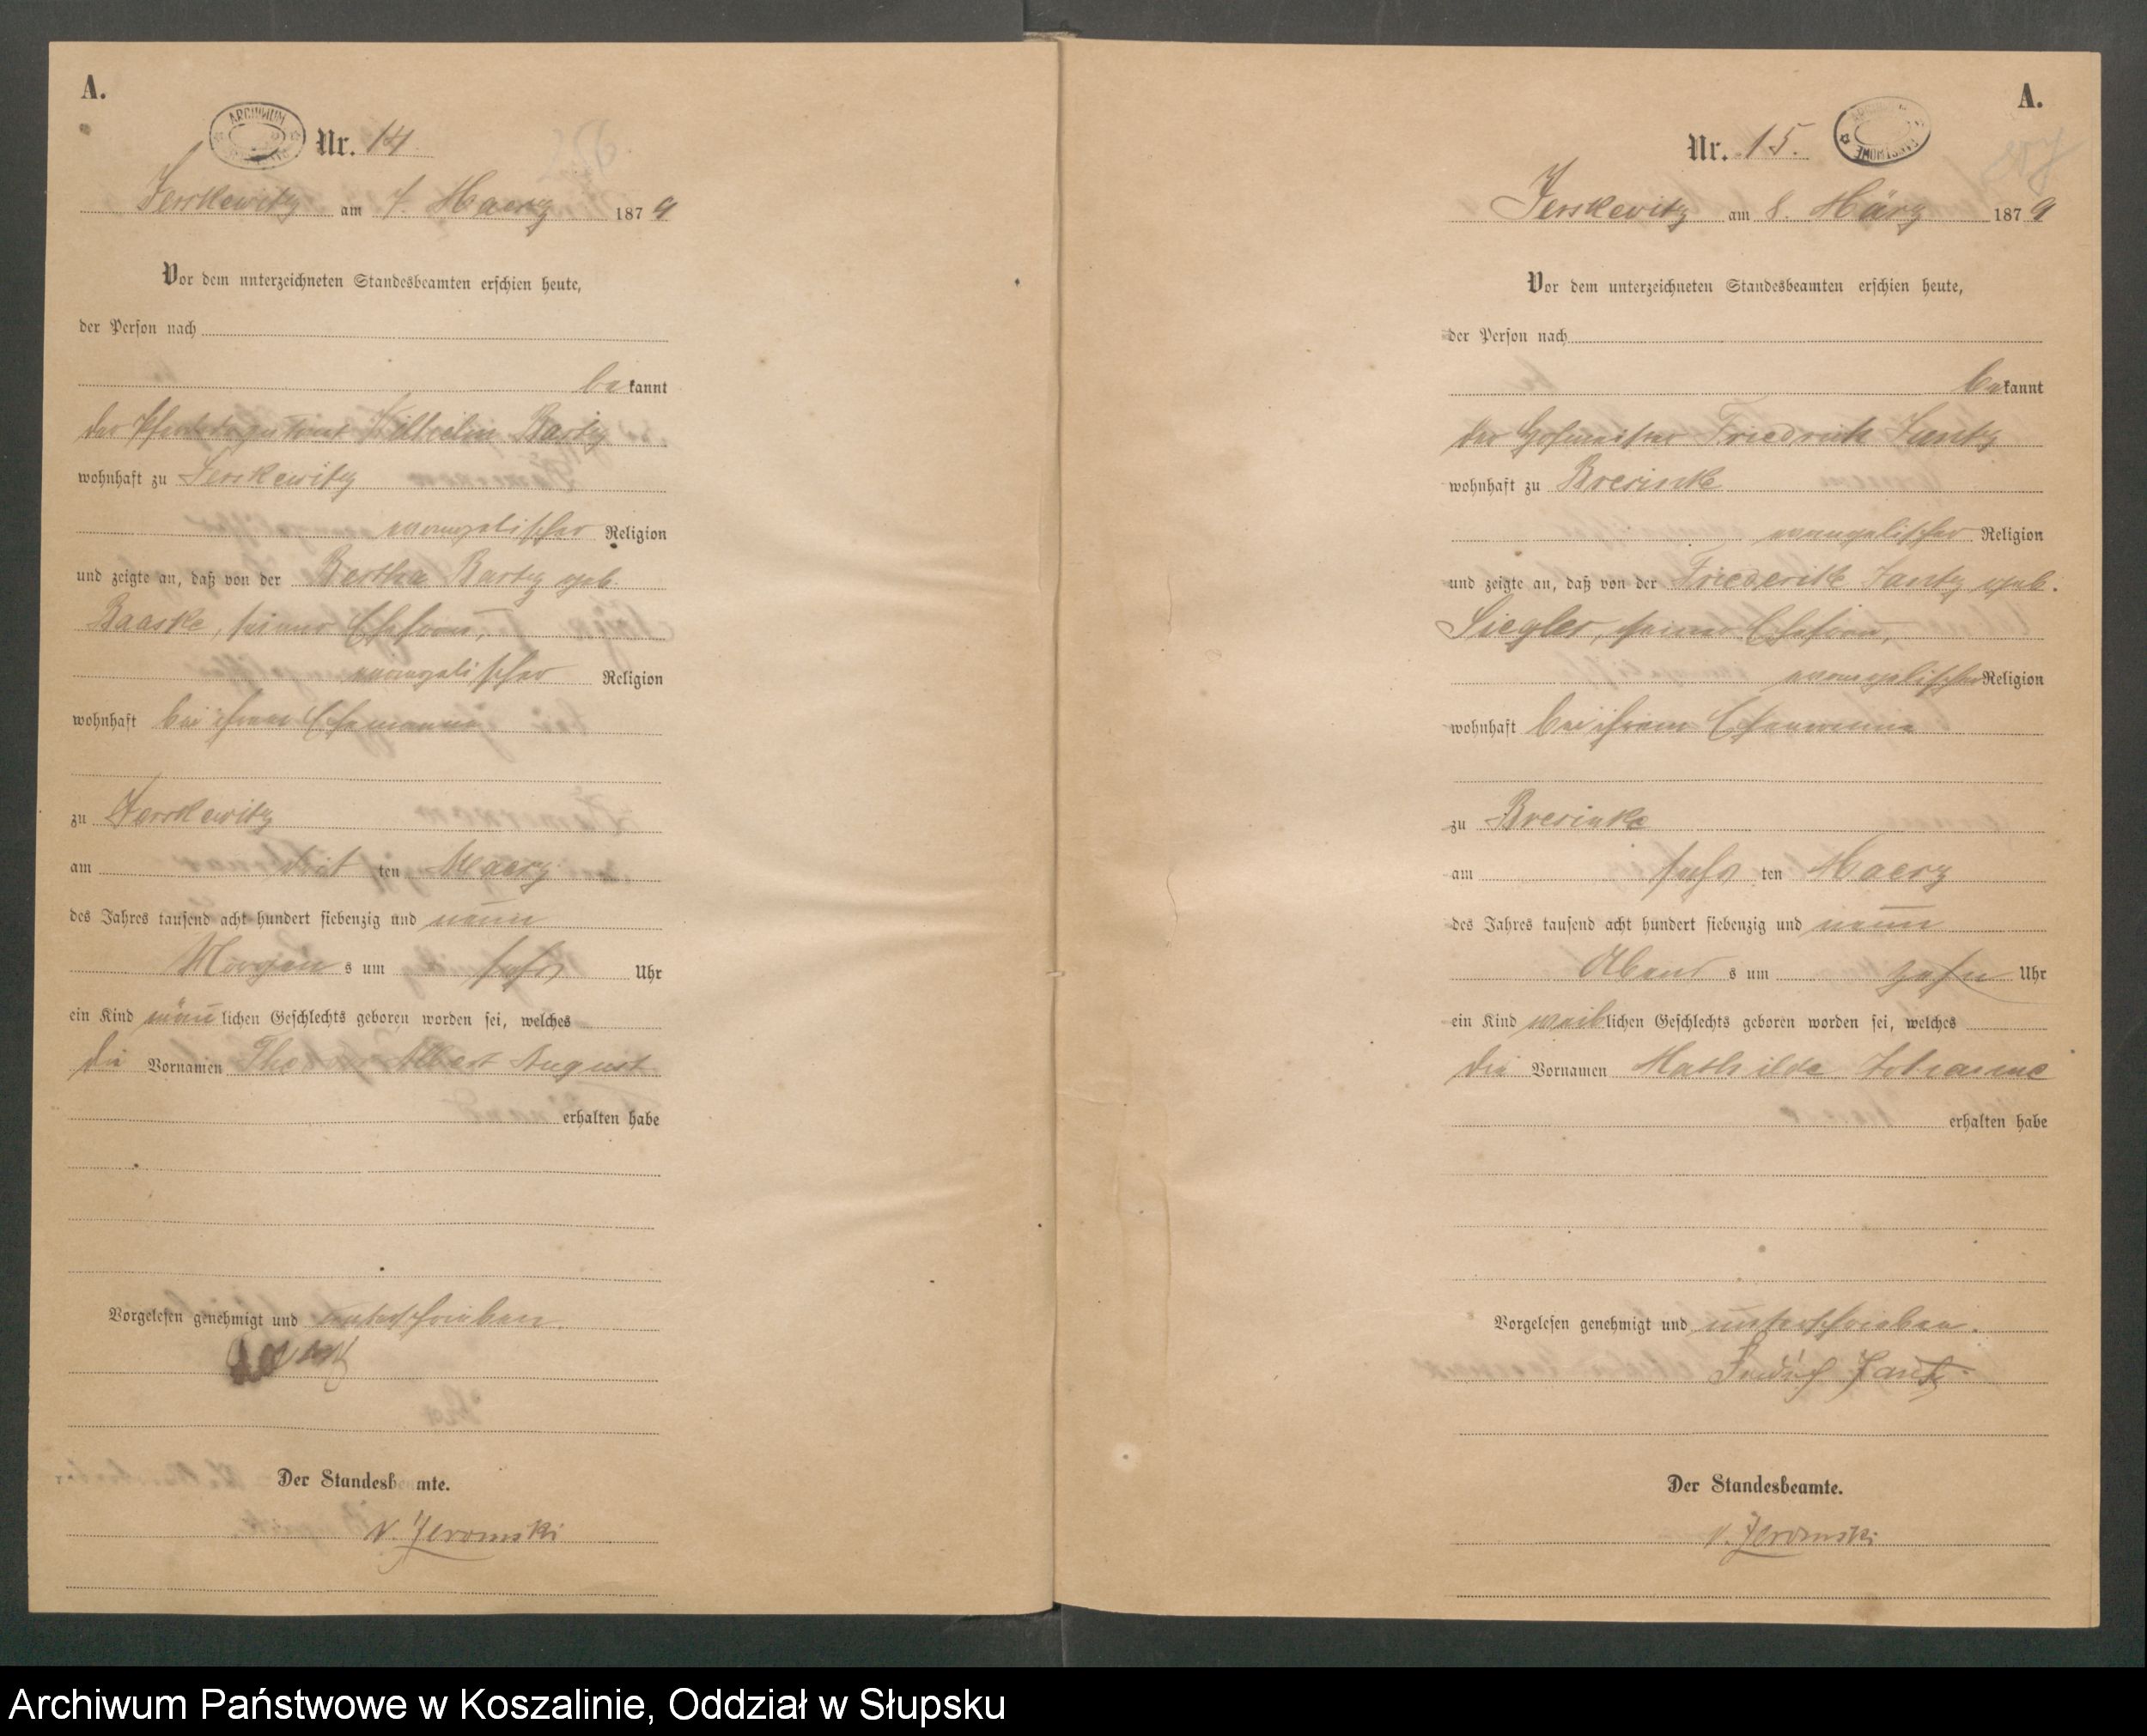 A.
ARCHIWUM
Nr. 14
256.
Jerskewitz am 7. Maerz 1879
Vor dem unterzeichneten Standesbeamten erschien heute,
der Person nach
bekannt
der Wilhelm Bartz
wohnhaft zu Jerskewitz
evangelischer Religion
und zeigte an, daß von der Bertha Bartz geb.
Baaske, seiner Ehefrau,
evangelischer Religion
wohnhaft bei ihrem Ehemanne
zu Jerskewitz
am drit ten Maerz
des Jahres tausend acht hundert siebenzig und neun
Morgen s um sechs Uhr
ein Kind männlichen Geschlechts geboren worden sei, welches
die Vornamen Albert August
erhalten habe
Vorgelesen genehmigt und unterschrieben.
Der Standesbeamte.
v. Zeromski
A.
Nr. 15.
Jerskewitz am 8. März 1879
Vor dem unterzeichneten Standesbeamten erschien heute,
der Person nach
bekannt
der Hofmeister Friedrich Jantz
wohnhaft zu Bresinke
evangelischer Religion
und zeigte an, daß von der Friederike Jantz geb.
Siegler, seiner Ehefrau,
evangelischer Religion
wohnhaft bei ihrem Ehemanne
zu Bresinke
am sechs ten Maerz
des Jahres tausend acht hundert siebenzig und neun
Abend s um zehn Uhr
ein Kind weiblichen Geschlechts geboren worden sei, welches
die Vornamen Mathilde Johanne
erhalten habe
Vorgelesen genehmigt und unterschrieben.
Friedrich Jantz.
Der Standesbeamte.
v. Zeromski
Archiwum Państwowe w Koszalinie, Oddział w Słupsku